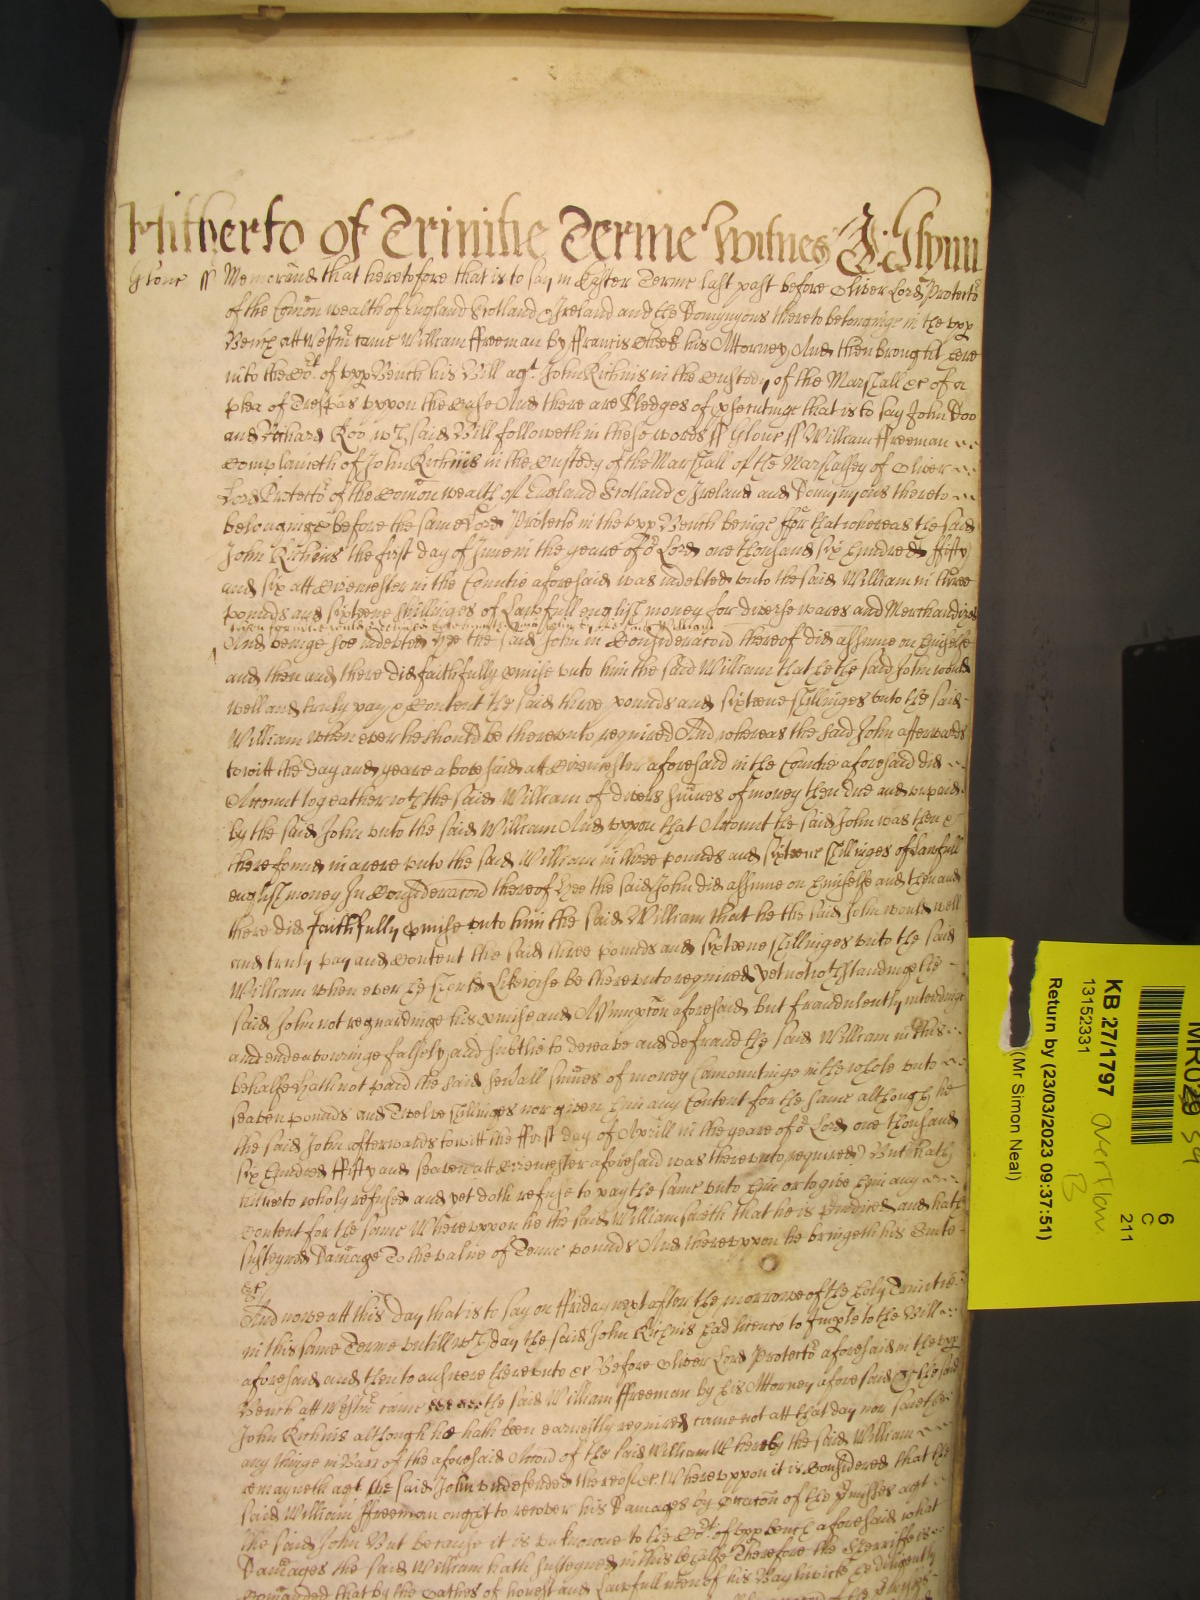 Hitherto of Trinitie Terme Witnes J: Glynn
Glouc ss Memorand that heretofore that is to say in Easter Terme last past before Oliver Lord Protector
of the Comon wealth of England Scotland & Ireland and the Domynyons thereto belonginge in the upp
Bench att Westmr came William ffreeman by ffrancis Cheek his Attorney And then brought here
into the Cort of upp Bench his Bill agt John Kichins in the Custody of the Marshall &c of a
plea of Trespas uppon the Case And there are Pledges of psecutinge that is to say John Doo
and Richard Roo wch said Bill followeth in these words ss Glouc ss William ffreeman
Complaineth of John Kichins in the Custody of the Marshall of the Marshalsey of Oliver
Lord Protector of the Comon wealth of England Scotland & Ireland and Domynyons thereto
belonginge before the same Lord Protector in the upp Bench beinge ffor that whereas the said
John Kichins the first day of June in the yeare of or Lord one thousand six hundred ffifty
and six att Cirencester in the Countie aforesaid was indebted unto the said William in three
pounds and sixteene shillinges of Lawfull english money for diverse wares and Merchandizes
And beinge soe indebted hee the said John in Consideracon thereof did assume on himselfe
and then and there did faithfully pmise unto him the said William that he the said John would
well and truly pay & Content the said three pounds and sixteene shillinges unto the said
William when ever he should be thereunto required And whereas the said John afterwards
to witt the day and yeare abovesaid att Cirencester aforesaid in the Countie aforesaid did
Accompt togeather wth the said William of divers sumes of money then due and unpaid
by the said John unto the said William And uppon that Accompt the said John was then &
there found in arere unto the said William in three pounds and sixteene shillinges of Lawfull
english money In Consideracon thereof hee the said John did assume on himselfe and then and
there did faithfully pmise unto him the said William that he the said John would well
and truly pay and Content the said three pounds and sixteene shillinges unto the said
William when ever he should Likewise be thereunto required yet notwthstandinge the
said John not regardinge his pmise and Assumpcon aforesaid but fraudulently intendinge
and endeavouringe falsely and subtlie to deceave and defraud the said William in this
behalfe hath not paid the said sevall sumes of money (amountinge in the whole unto
seaven pounds and Twelve shillinges nor given him any Content for the same although he
the said John afterwards to witt the ffirst day of Aprill in the yeare of or Lord one thousand
six hundred ffifty and seaven att Cirencester aforesaid was thereunto required) But hath
hitherto wholy refused and yet doth refuse to pay the same unto him or to give him any
Content for the same Whereuppon he the said William saieth that he is Prejudiced and hath
susteyned Damage To the value of Tenne pounds And thereuppon he bringeth his Suite
&c
And nowe att this day that is to say on ffriday next after the morrowe of the holy Trinitie
in this same Terme untill wch day the said John Kichins had licence to Imparle to the Bill
aforesaid and then to answere thereunto &c Before Oliver Lord Protector aforesaid in the upp
Bench att Westmr came the said William ffreeman by his Attorney aforesaid & the said
John Kichins although he hath ben earnestly required came not att that day nor saieth
any thinge in Barr of the aforesaid Accon of the said William Whereby the said William
remayneth agt the said John undefended thereof &c Whereuppon it is Considered that the
said William ffreeman ought to recover his Damages by Occacon of the pmisses agt
the said John But because it is unknowne to the Cort of upp bench aforesaid what
Damages the said William hath susteyned in this behalfe Therefore the Sherriffe is
Comanded that by the Oathes of honest and Lawfull men of his Bayliwicke he diligently
KB 27/1797
13152331
Return by (23/03/2023 09:37:51)
(Mr Simon Neal)
overflow
B
6
C
211